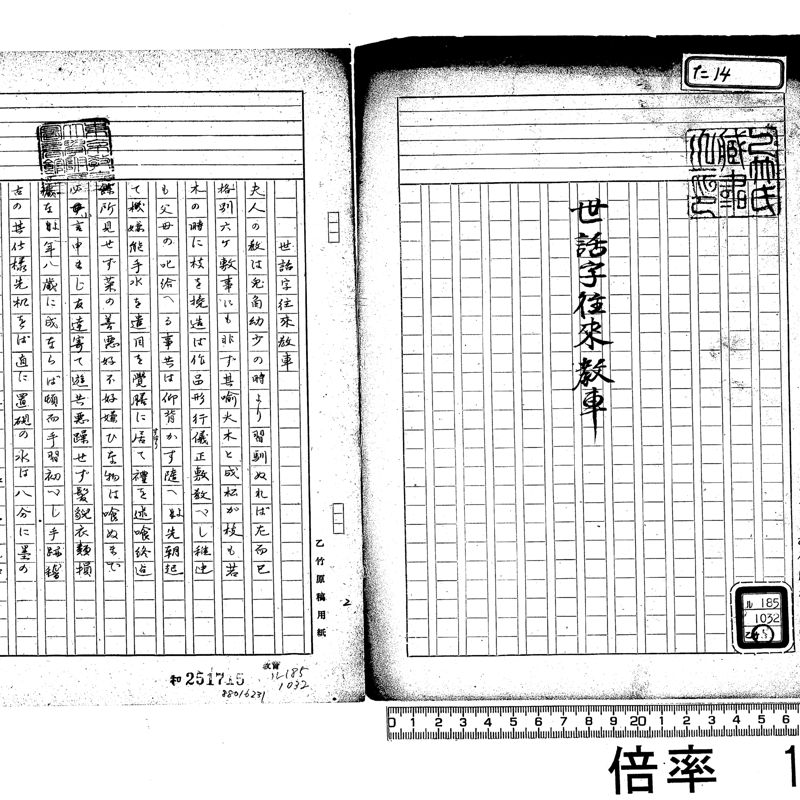 た 14
乙竹氏
蔵書
之印
世話字往來教車
ル 185
1032
世話字往來教車
夫人の教は兎角幼少の時より習馴ぬれば左而已
格別六ケ敷事にも非ず其喩大木と成松が枝も若
木の時に枝を撓造ば作品形行儀正敷教べし稚
も父母の叱給へる事共は仰背かず随へ先朝起
て機嫌能手水を遣目を覺膳に居て禮を述喰終迄
所見せず菜の善悪好不好嫌ひな物は喰ぬまで
必言申まじ友達寄て遊共悪躁せず髪衣類損
年八歳に成ならば頓而手習初べし手
古の其仕様先机をば直に置硯の水は八分に墨の
乙竹原稿用紙
2
和251715
ル185
1032
88016231
0 1 2 3 4 5 6 7 8 9 20 1 2 3 4 5 6
倍率 1